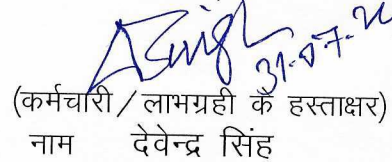 31.07.2
(कर्मचारी / लाभग्रही के हस्ताक्षर)
नाम देवेन्द्र सिंह